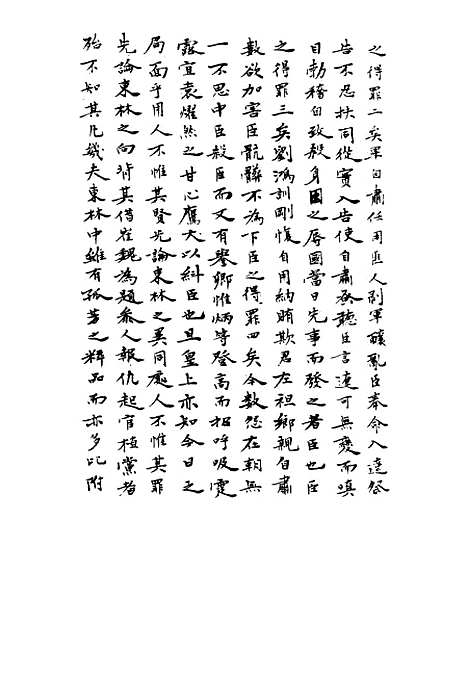 之得罪二矣畢自肅任用匪人剮軍釀亂臣奉命入遼祭
告不忍扶同從實入告使自肅承聽臣言遼可無變而嗔
目勃稽自致殺身國之辱國當日先事而發之者臣也臣
之得罪三矣劉鴻訓剛愎自用納賄欺君左袒鄉親自肅
數欲加害臣骯髒不為下臣之得罪四矣今數怨在朝無
一不思中臣殺臣而又有譽卿惟炳等登高而招呼吸霆
露宜袁燿然之甘心鷹犬以糾臣也且皇上亦知今日之
局面乎用人不惟其賢先論東林之異同處人不惟其罪
先論東林之向背其借崔魏為題叅人報仇起官植黨者
殆不知其凡幾夫東林中雖有孤芳之粹品而亦多比附